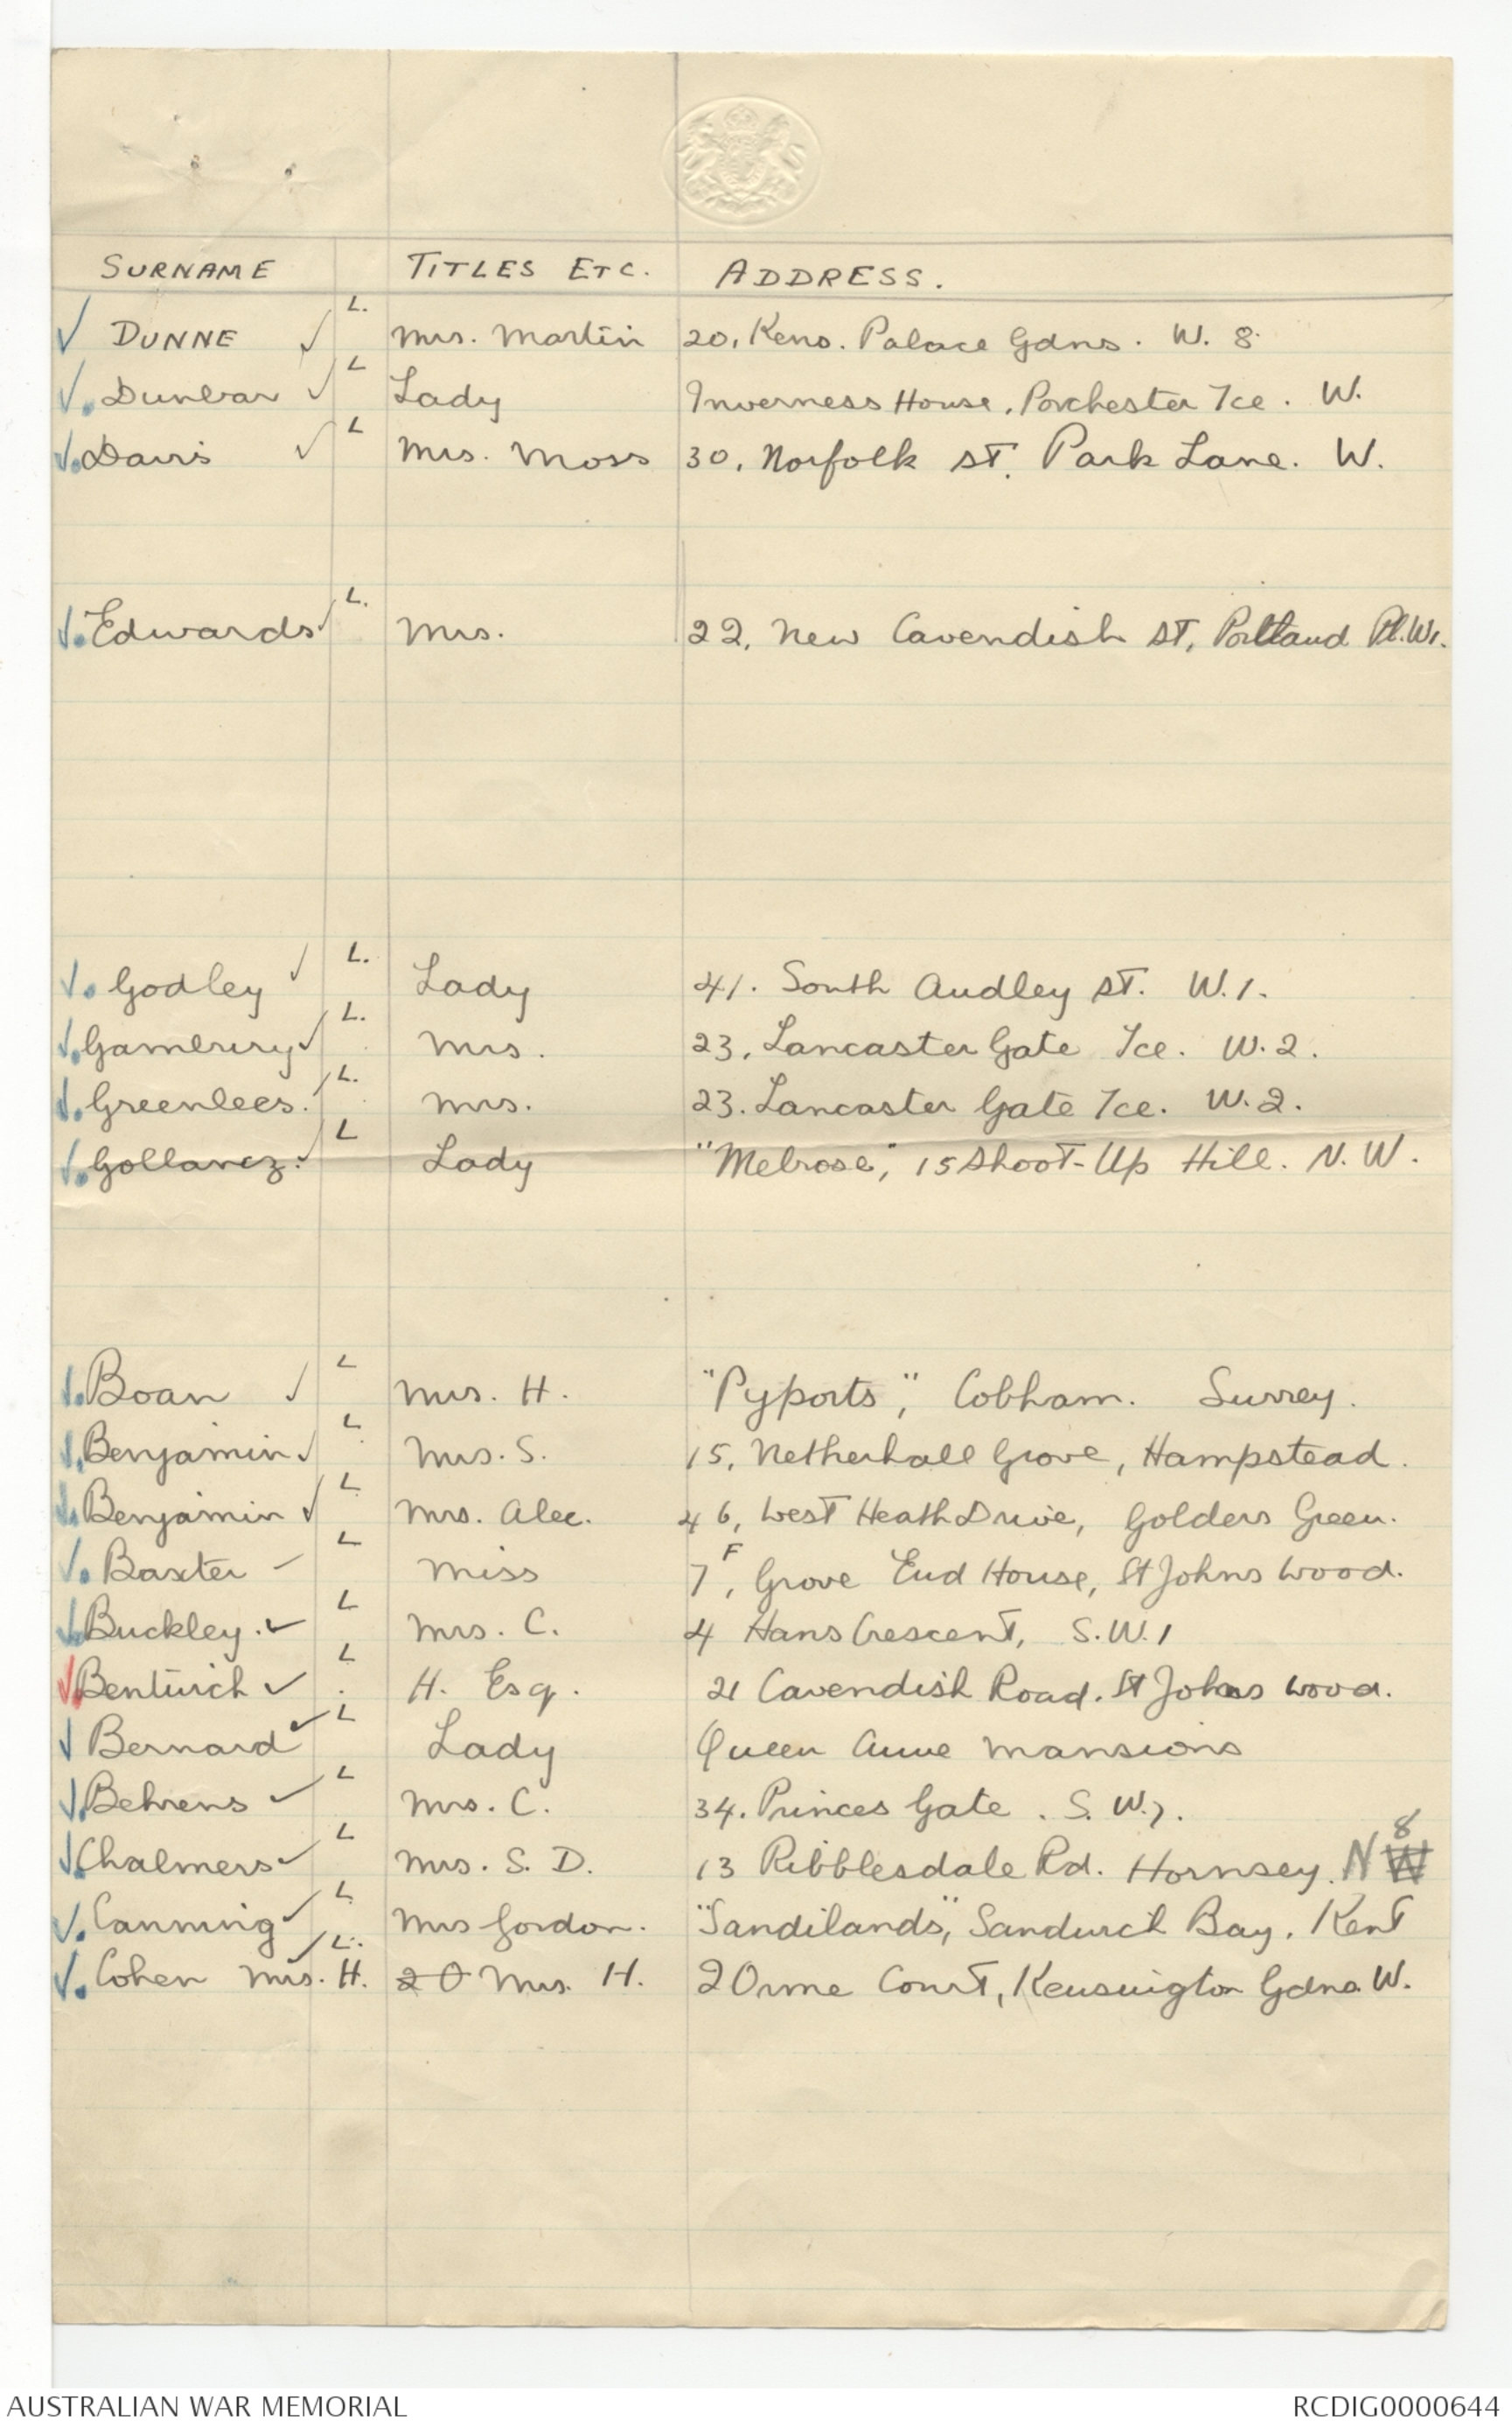 SURNAME TITLES ETC. ADDRESS.
✓ DUNNE ✓ L. Mrs. Martin 20, Kens. Palace Gdns. W. 8.
✓. Dunbar ✓ L Lady Inverness House, Porchester Tce. W.
✓. Davis ✓ L Mrs. Moss 30, Norfolk St. Park Lane. W.
✓. Edwards ✓ L. Mrs. 22, New Cavendish St, Portland Pl. W1.
✓. Godley ✓ L. Lady 41. South Audley St. W.1.
✓. ✓ L. Mrs. 23, Lancaster Gate Tce. W.2.
✓. Greenlees. ✓ L. Mrs. 23. Lancaster Gate Tce. W.2.
✓. Gollancz. ✓ L Lady "Melrose", 15 Shoot-Up Hill. N.W.
✓. Boan ✓ L Mrs. H. "Pyports", Cobham. Surrey.
✓. Benjamin ✓ L Mrs. S. 15, Netherhall Grove, Hampstead.
✓. Benjamin ✓ L Mrs. Alec. 46, West Heath Drive, Golders Green.
✓. Baxter - L Miss 7F, Grove End House, St Johns Wood.
✓. Buckley. ✓ L Mrs. C. 4 Hans Crescent, S.W.1
✓. Bentwich ✓ L H. Esq. 21 Cavendish Road. St Johns Wood.
✓ Bernard ✓ L Lady Queen Anne Mansions
✓. Behrens ✓ L Mrs. C. 34. Princes Gate. S.W.7.
✓. Chalmers ✓ L Mrs. S. D. 13 Ribblesdale Rd. Hornsey. N W 8
✓. Canning ✓ L Mrs Gordon. "Sandilands", Sandwich Bay. Kent
✓. Cohen Mrs. H. ✓ L. 20 Mrs. H. 2 Orme Court, Kensington Gdns. W.
AUSTRALIAN WAR MEMORIAL RCDIG0000644